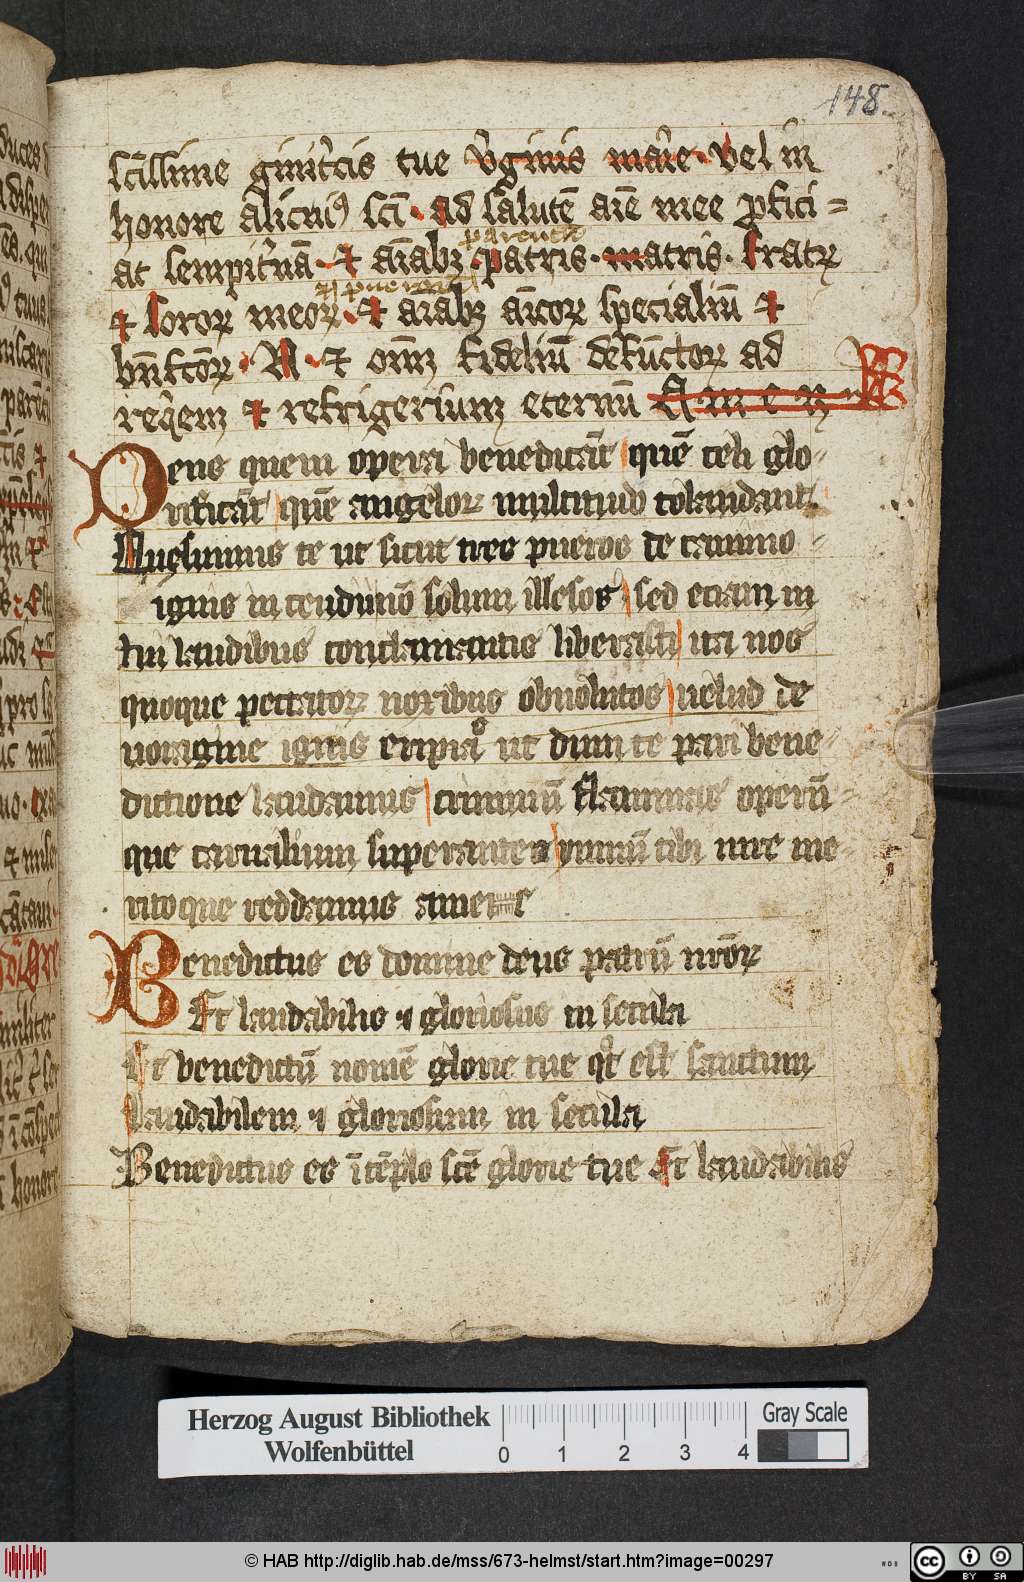 148
scissime genitricis tue virginis marie. Vel in
honore alicuiꝰ scī. ad salutē aīe mee ꝓfici=
parentū
at sempit̾nā. et aīabꝫ patris. matris. fratꝝ
et soroꝝ meoꝝ. et aīabꝫ aīcoꝝ specialiū et
bn̄fcōꝝ. N. et om̄m fideliū defūctoꝝ ad
req̇em et refrigerium eternū Amen
Deus quem opera benedicāt quē celi glo-
rificāt quē angeloꝝ multitudo colaudant
Quesumus te ut sicut tres pueros de camino
ignis incendinō solum illesos sed etiam in
tui laudibus conclamantis liberasti ita nos
quoque peccatoꝝ nexibus obuolutos uelud de
uoragine ignis eripias ut dum te pari bene-
dictione laudamus criminū flammas operū
que carnalium superantes ymnū tibi iure me-
rito que reddamus amen
Benedictus es domine deus patrū nr̄oꝝ
Et laudabilis ⁊ gloriosus in secula
Et benedictū nomē glorie tue qd̄ est sanctum
laudabilem ⁊ gloriosum in secula
Benedictus es ī tēplo scē glorie tue Et laudabilis
Herzog August Bibliothek
Wolfenbüttel
0 1 2 3 4
Gray Scale
© HAB http://diglib.hab.de/mss/673-helmst/start.htm?image=00297
cc BY SA